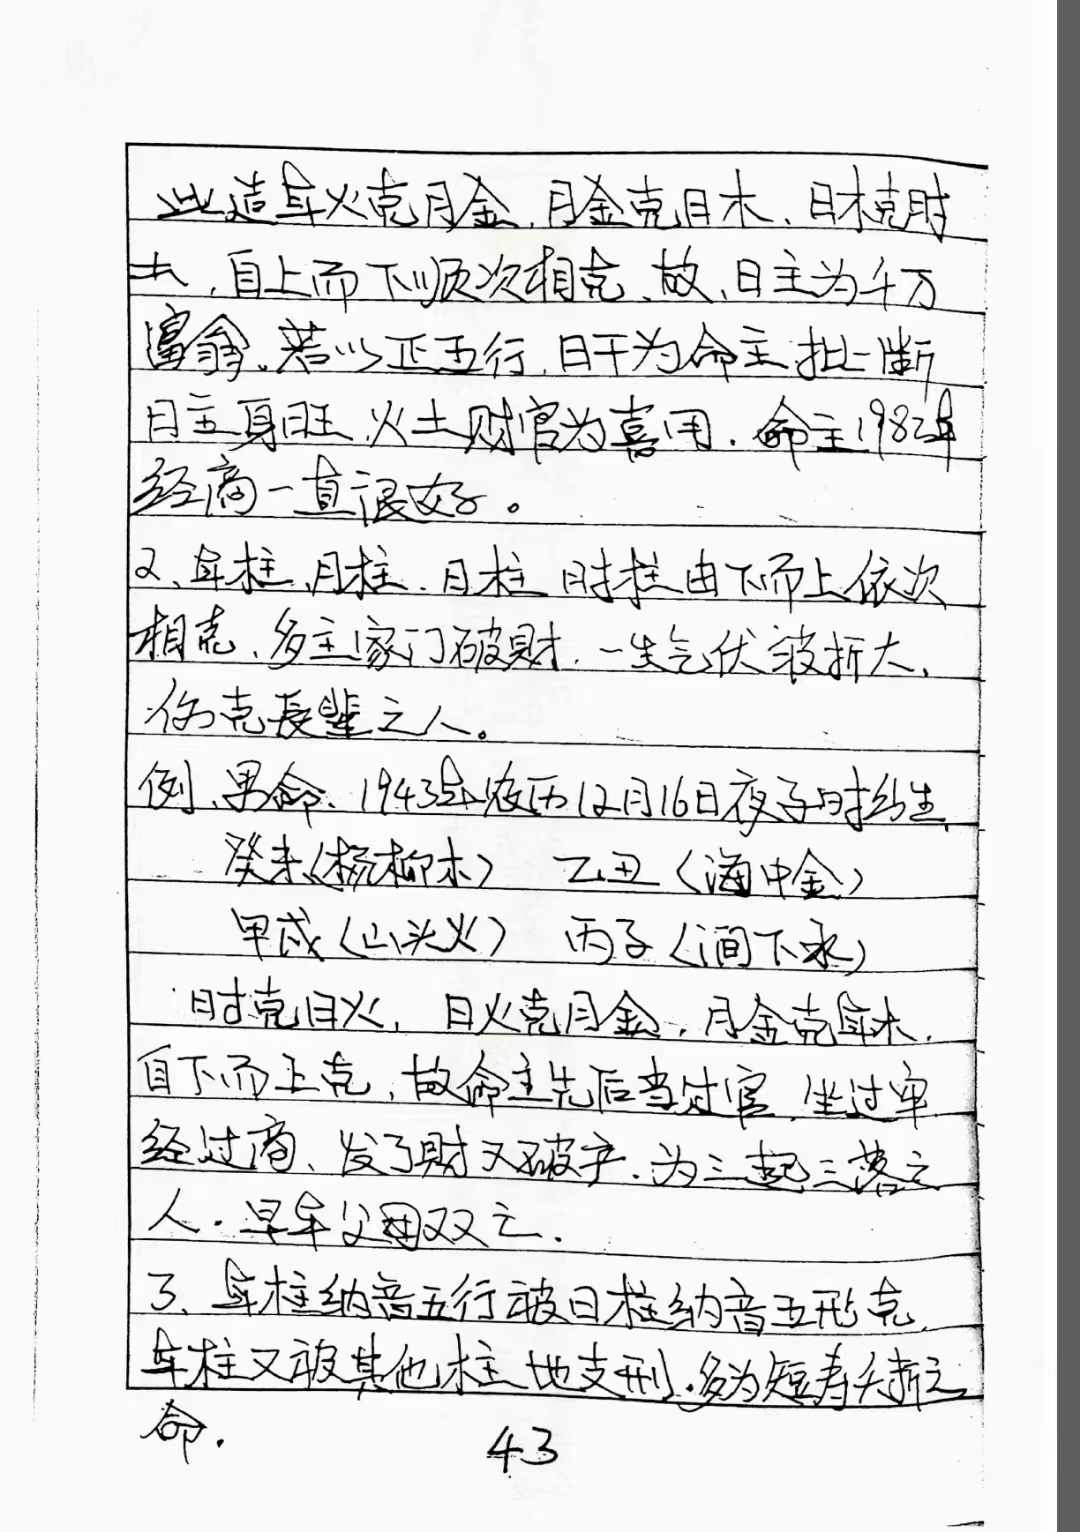 此造年火克月金、月金克日木、日木克时
土、自上而下顺次相克、故、日主为千万
富翁。若以正五行、日干为命主批断
日主身旺、火土财官为喜用. 命主1982年
经商一直很好。
2、年柱、月柱、日柱 时柱由下而上依次
相克、多主家门破财、一生气伏波折大、
伤克長辈之人。
例、男命、1943年农历12月16日夜子时出生、
癸未(杨柳木) 乙丑(海中金)
甲戌(山头火) 丙子(涧下水)
时克日火, 日火克月金, 月金克年木.
自下而上克, 故命主先后当过官、坐过牢
经过商、发了财又破产. 为三起三落之
人. 早年父母双亡.
3、年柱纳音五行被日柱纳音五形克,
年柱又被其他柱地支刑. 多为短寿夭折之
命.
43